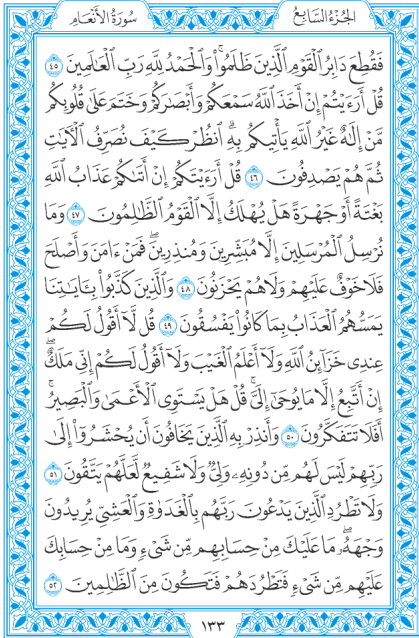 الجُزْءُ السَّابِعُ
سُورَةُ الأَنْعَامِ
فَقُطِعَ دَابِرُ ٱلْقَوْمِ ٱلَّذِينَ ظَلَمُوا۟ ۚ وَٱلْحَمْدُ لِلَّهِ رَبِّ ٱلْعَـٰلَمِينَ ٤٥
قُلْ أَرَءَيْتُمْ إِنْ أَخَذَ ٱللَّهُ سَمْعَكُمْ وَأَبْصَـٰرَكُمْ وَخَتَمَ عَلَىٰ قُلُوبِكُم
مَّنْ إِلَـٰهٌ غَيْرُ ٱللَّهِ يَأْتِيكُم بِهِ ۗ ٱنظُرْ كَيْفَ نُصَرِّفُ ٱلْـَٔايَـٰتِ
ثُمَّ هُمْ يَصْدِفُونَ ٤٦ قُلْ أَرَءَيْتَكُمْ إِنْ أَتَىٰكُمْ عَذَابُ ٱللَّهِ
بَغْتَةً أَوْ جَهْرَةً هَلْ يُهْلَكُ إِلَّا ٱلْقَوْمُ ٱلظَّـٰلِمُونَ ٤٧ وَمَا
نُرْسِلُ ٱلْمُرْسَلِينَ إِلَّا مُبَشِّرِينَ وَمُنذِرِينَ ۖ فَمَنْ ءَامَنَ وَأَصْلَحَ
فَلَا خَوْفٌ عَلَيْهِمْ وَلَا هُمْ يَحْزَنُونَ ٤٨ وَٱلَّذِينَ كَذَّبُوا۟ بِـَٔايَـٰتِنَا
يَمَسُّهُمُ ٱلْعَذَابُ بِمَا كَانُوا۟ يَفْسُقُونَ ٤٩ قُل لَّآ أَقُولُ لَكُمْ
عِندِى خَزَآئِنُ ٱللَّهِ وَلَآ أَعْلَمُ ٱلْغَيْبَ وَلَآ أَقُولُ لَكُمْ إِنِّى مَلَكٌ ۖ
إِنْ أَتَّبِعُ إِلَّا مَا يُوحَىٰٓ إِلَىَّ ۚ قُلْ هَلْ يَسْتَوِى ٱلْأَعْمَىٰ وَٱلْبَصِيرُ ۚ
أَفَلَا تَتَفَكَّرُونَ ٥٠ وَأَنذِرْ بِهِ ٱلَّذِينَ يَخَافُونَ أَن يُحْشَرُوٓا۟ إِلَىٰ
رَبِّهِمْ ۙ لَيْسَ لَهُم مِّن دُونِهِۦ وَلِىٌّ وَلَا شَفِيعٌ لَّعَلَّهُمْ يَتَّقُونَ ٥١
وَلَا تَطْرُدِ ٱلَّذِينَ يَدْعُونَ رَبَّهُم بِٱلْغَدَوٰةِ وَٱلْعَشِىِّ يُرِيدُونَ
وَجْهَهُۥ ۖ مَا عَلَيْكَ مِنْ حِسَابِهِم مِّن شَىْءٍ وَمَا مِنْ حِسَابِكَ
عَلَيْهِم مِّن شَىْءٍ فَتَطْرُدَهُمْ فَتَكُونَ مِنَ ٱلظَّـٰلِمِينَ ٥٢
١٣٣